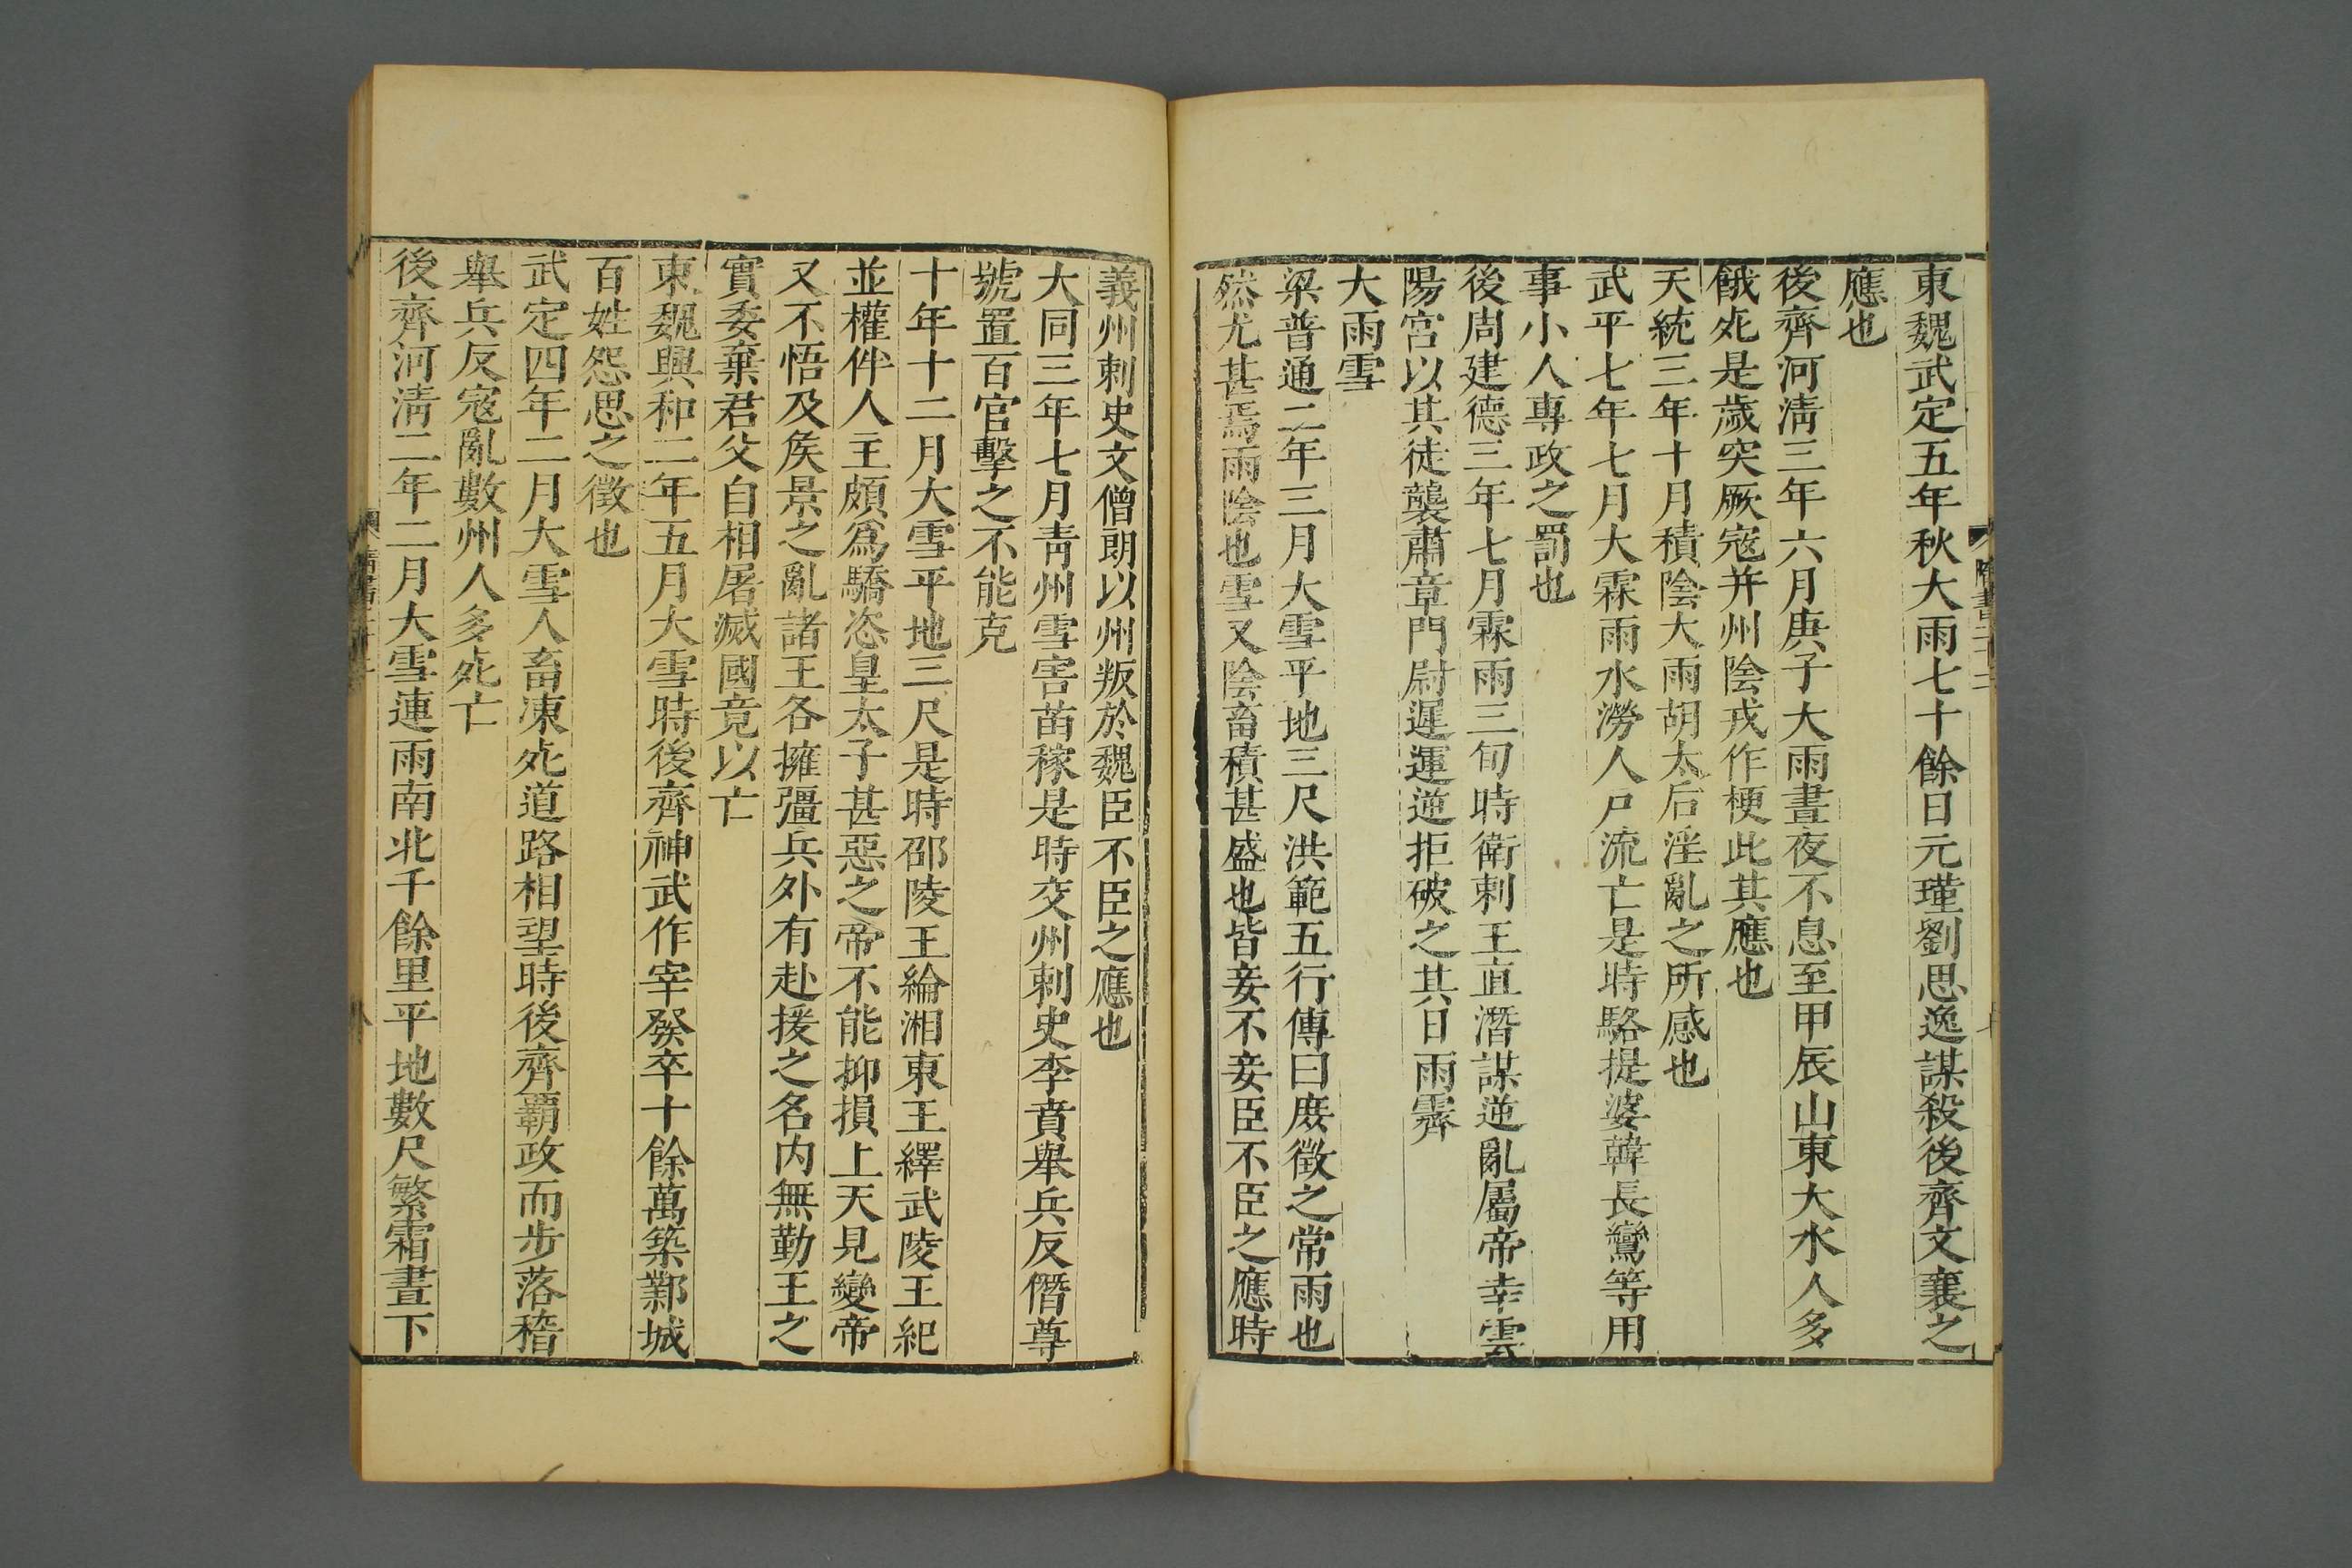 東魏武定五年秋大雨七十餘日元瑾劉思逸謀殺後齊文襄之
應也
後齊河淸三年六月庚子大雨晝夜不息至甲辰山東大水人多
餓死是歲突厥寇并州陰戎作梗此其應也
天統三年十月積陰大雨胡太后淫亂之所感也
武平七年七月大霖雨水澇人戸流亡是時駱提婆韓長鸞等用
事小人專政之罰也
後周建德三年七月霖雨三旬時衛剌王直潛謀逆亂屬帝幸雲
陽宮以其徒襲肅章門尉遲運逆拒破之其日雨霽
大雨雪
梁普通二年三月大雪平地三尺洪範五行傳曰庶徵之常雨也
然尤甚焉雨陰也雪又陰畜積甚盛也皆妾不妾臣不臣之應時
義州剌史文僧朗以州叛於魏臣不臣之應也
大同三年七月靑州雪害苗稼是時交州剌史李賁舉兵反僭尊
號置百官擊之不能克
十年十二月大雪平地三尺是時邵陵王綸湘東王繹武陵王紀
並權侔人主頗爲驕恣皇太子甚惡之帝不能抑損上天見變帝
又不悟及侯景之亂諸王各擁彊兵外有赴援之名内無勤王之
實委棄君父自相屠滅國竟以亡
東魏興和二年五月大雪時後齊神武作宰發卒十餘萬築鄴城
百姓怨思之徵也
武定四年二月大雪人畜凍死道路相望時後齊霸政而步落稽
舉兵反寇亂數州人多死亡
後齊河淸二年二月大雪連雨南北千餘里平地數尺繁霜晝下